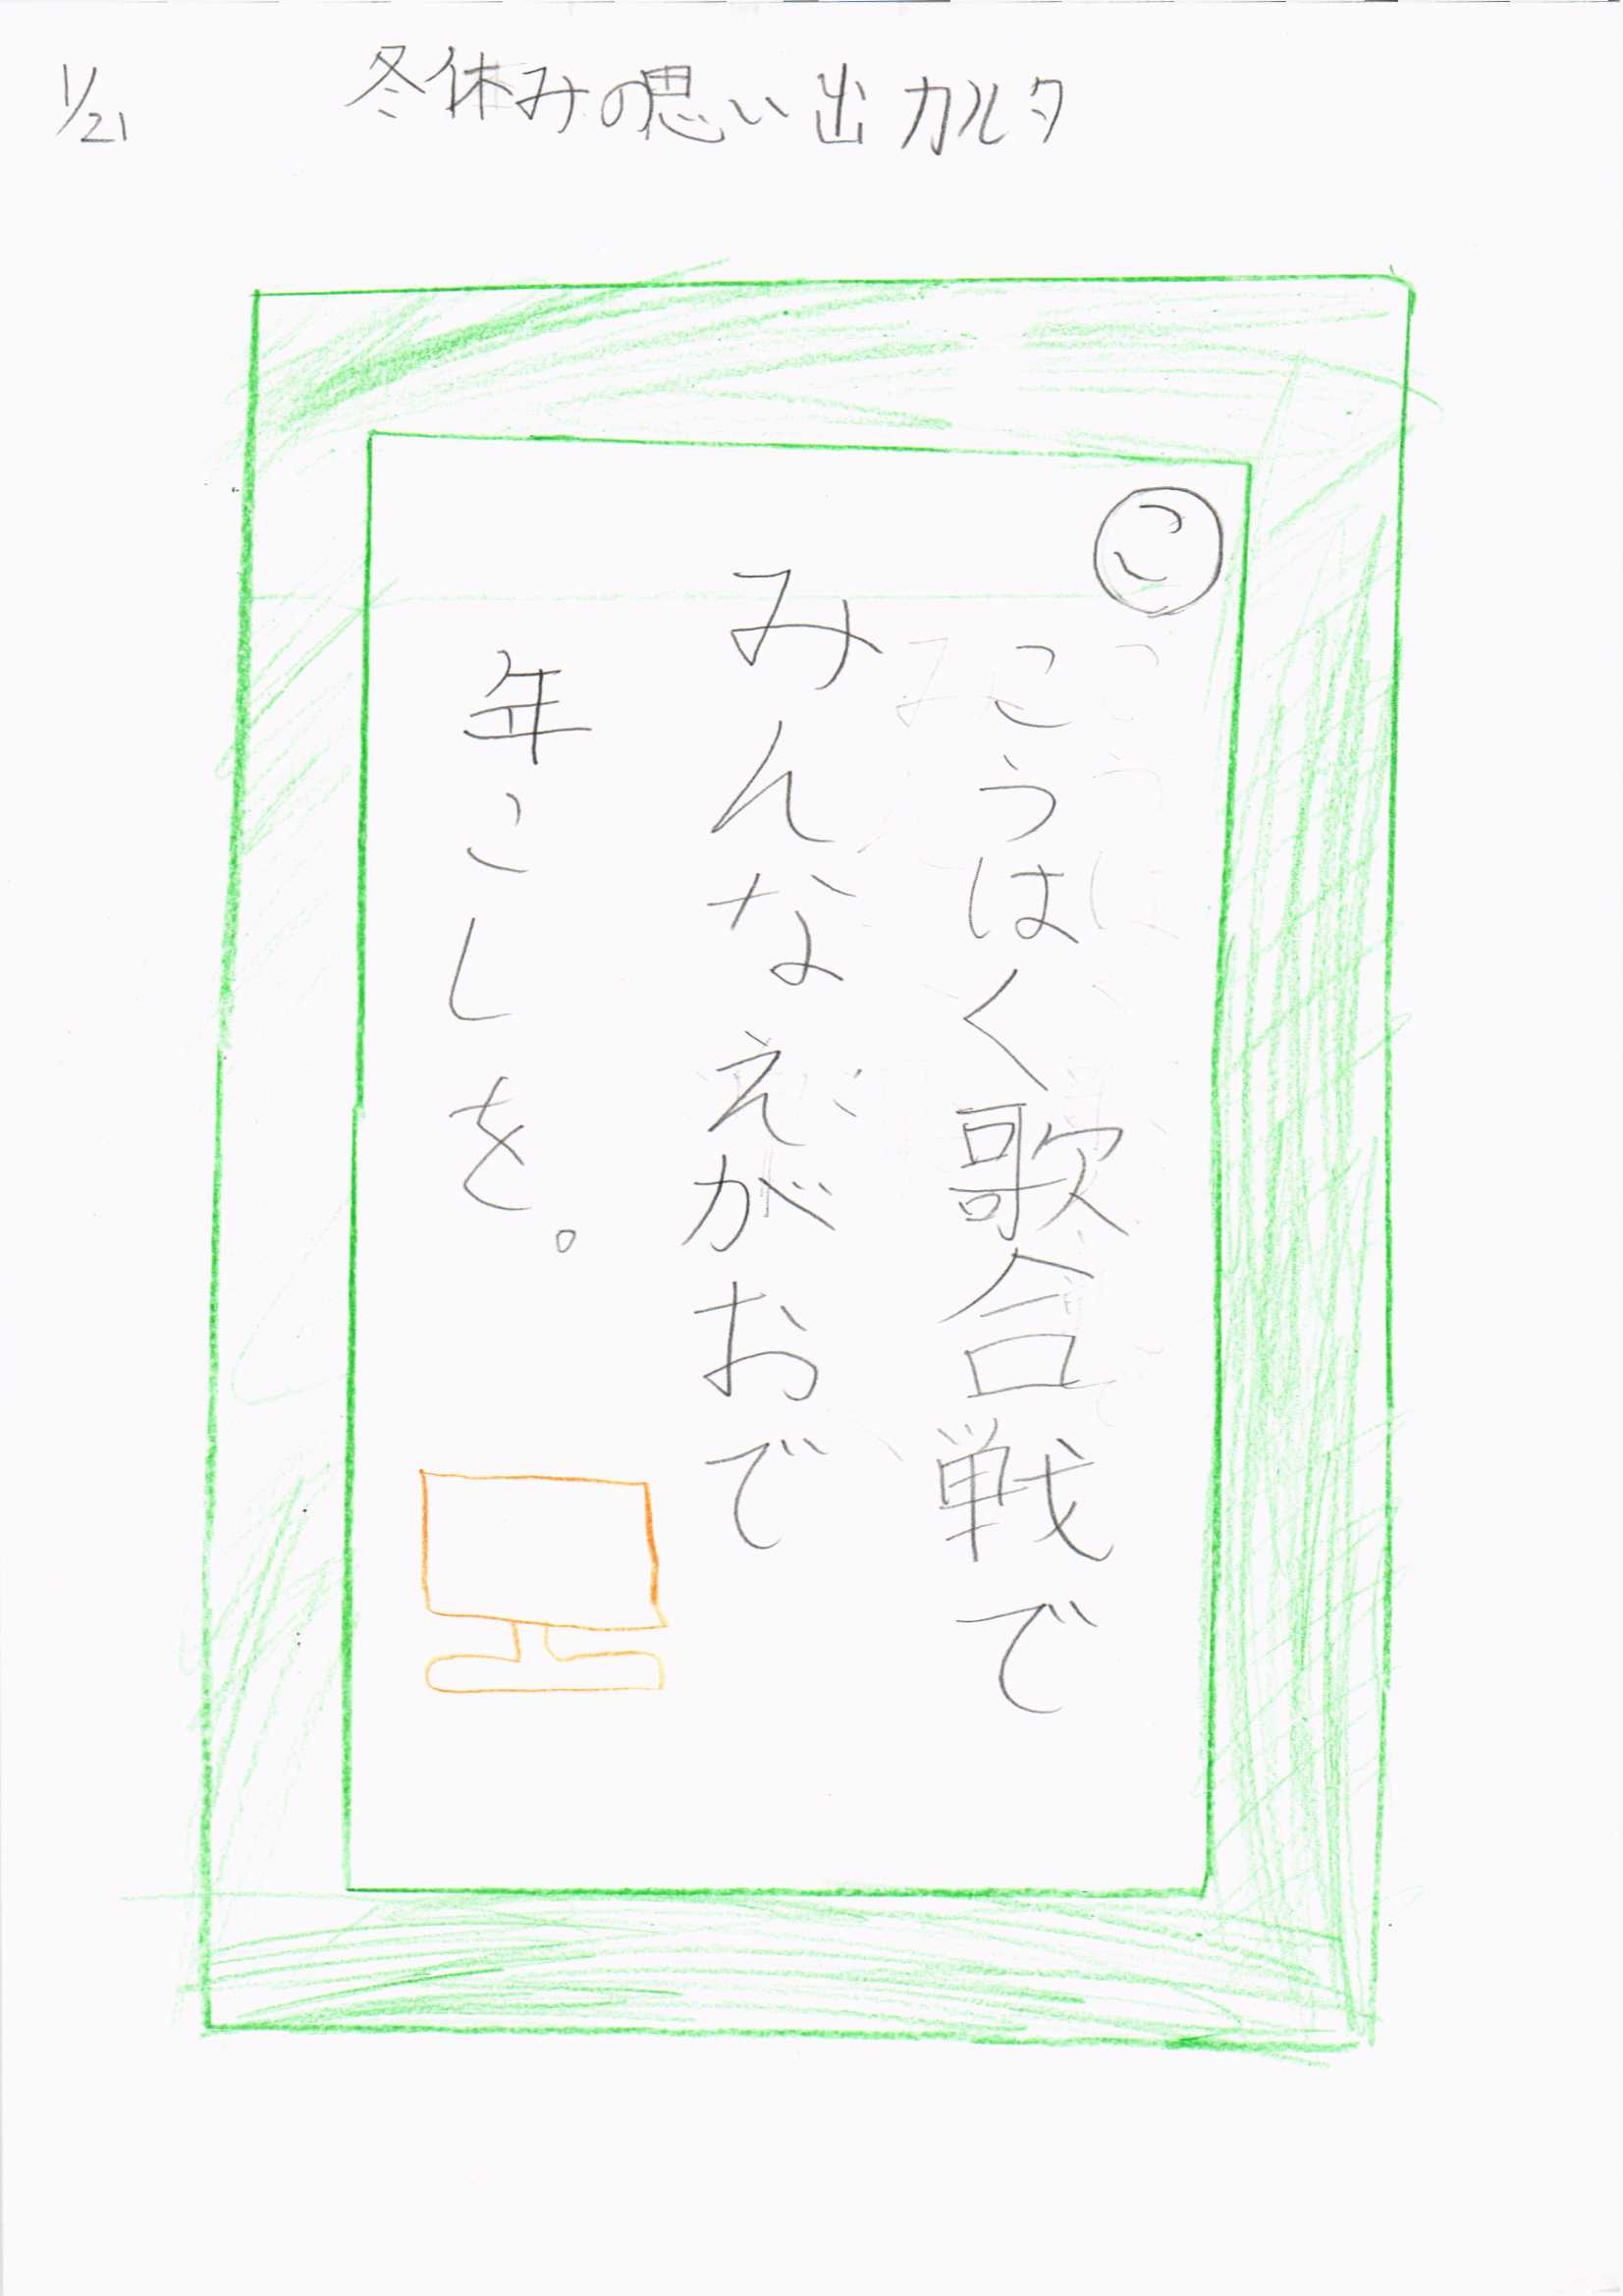 1/21
冬休みの思い出カルタ
こ
こうはく歌合戦で
みんなえがおで
年こしを。